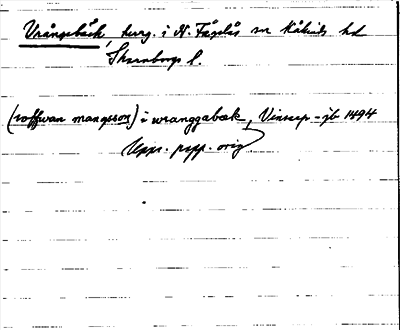 Vrångabäck, herrg. i N. Fågelås sn Kåkinds hd
Skaraborgs l.
(roffwan mangsson) i wranggabæk, Vinsarp-jb 1494
Uppr. papp. orig